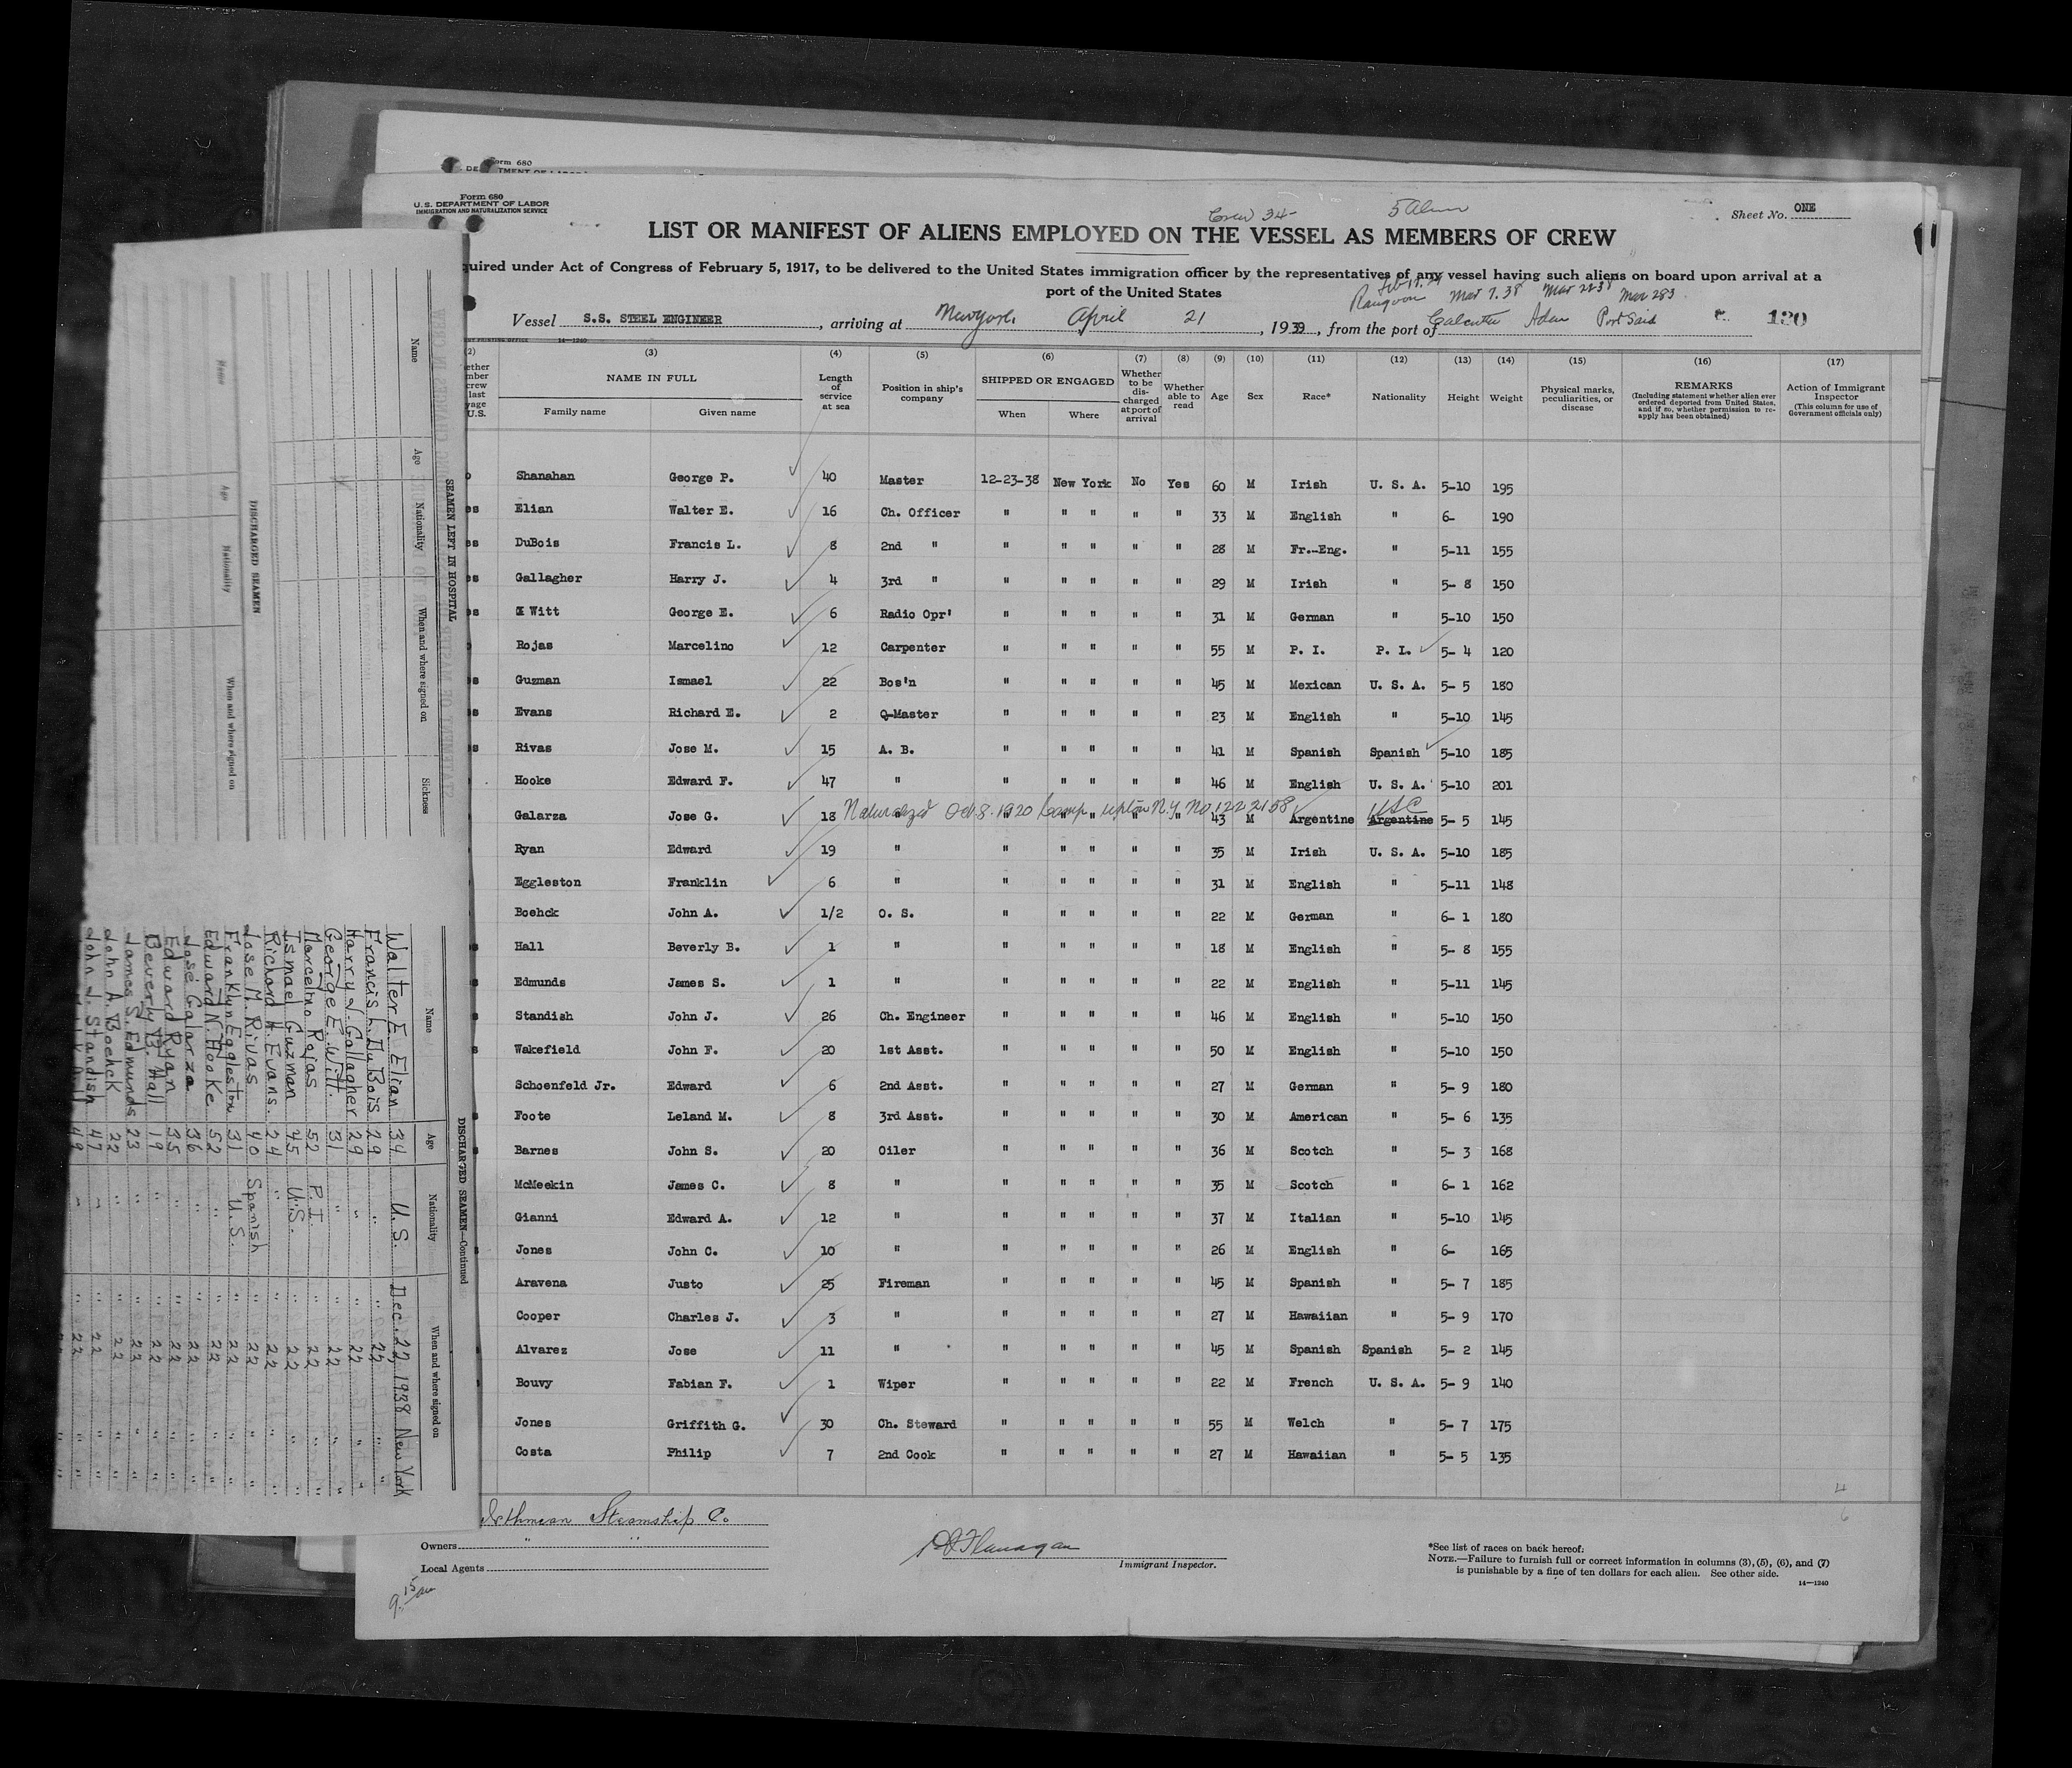 Form 680
Form 680
U.S. DEPARTMENT OF LABOR
IMMIGRATION AND NATURALIZATION SERVICE
Crew 34-
Sheet No. ONE
LIST OR MANIFEST OF ALIENS EMPLOYED ON THE VESSEL AS MEMBERS OF CREW
quired under Act of Congress of February 5, 1917, to be delivered to the United States immigration officer by the representatives of any vessel having such aliens on board upon arrival at a
port of the United States
Rangoon Mar 7.38 Mar 28 3
Vessel S.S. STEEL ENGINEER, arriving at New York April 21, 1939, from the port of Calcutta Aden Port Said 120
(2) (3) (4) (5) (6) (7) (8) (9) (10) (11) (12) (13) (14) (15) (16) (17)
NAME IN FULL Family name Given name Length of service at sea Position in ship's company SHIPPED OR ENGAGED When Where Whether to be discharged at port of arrival Whether able to read Age Sex Race* Nationality Height Weight Physical marks, peculiarities, or disease REMARKS (Including statement whether alien ever ordered deported from United States, and if so, whether permission to re-apply has been obtained) Action of Immigrant Inspector (This column for use of Government officials only)
Shanahan George P. 40 Master 12-23-38 New York No Yes 60 M Irish U. S. A. 5-10 195
es Elian Walter E. 16 Ch. Officer " " " " " 33 M English " 6- 190
es DuBois Francis L. 8 2nd " " " " " " 28 M Fr.-Eng. " 5-11 155
es Gallagher Harry J. 4 3rd " " " " " " 29 M Irish " 5- 8 150
es Witt George E. 6 Radio Opr' " " " " " 31 M German " 5-10 150
Rojas Marcelino 12 Carpenter " " " " " 55 M P. I. P. I. 5- 4 120
es Guzman Ismael 22 Bos'n " " " " " 45 M Mexican U. S. A. 5- 5 180
es Evans Richard E. 2 Q-Master " " " " " 23 M English " 5-10 145
es Rivas Jose M. 15 A. B. " " " " " 41 M Spanish Spanish 5-10 185
Hooke Edward F. 47 " " " " " " 46 M English U. S. A. 5-10 201
Naturalized Oct. 8. 1920 Camp Upton N.Y. No 1222158 USC
Galarza Jose G. 18 " " " " " " 43 M Argentine Argentine 5- 5 145
Ryan Edward 19 " " " " " " 35 M Irish U. S. A. 5-10 185
Eggleston Franklin 6 " " " " " " 31 M English " 5-11 148
Boehck John A. 1/2 O. S. " " " " " 22 M German " 6- 1 180
Hall Beverly B. 1 " " " " " " 18 M English " 5- 8 155
Edmunds James S. 1 " " " " " " 22 M English " 5-11 145
Standish John J. 26 Ch. Engineer " " " " " 46 M English " 5-10 150
Wakefield John F. 20 1st Asst. " " " " " 50 M English " 5-10 150
Schoenfeld Jr. Edward 6 2nd Asst. " " " " " 27 M German " 5- 9 180
Foote Leland M. 8 3rd Asst. " " " " " 30 M American " 5- 6 135
Barnes John S. 20 Oiler " " " " " 36 M Scotch " 5- 3 168
McMeekin James C. 8 " " " " " " 35 M Scotch " 6- 1 162
Gianni Edward A. 12 " " " " " " 37 M Italian " 5-10 145
Jones John C. 10 " " " " " " 26 M English " 6- 165
Aravena Justo 25 Fireman " " " " " 45 M Spanish " 5- 7 185
Cooper Charles J. 3 " " " " " " 27 M Hawaiian " 5- 9 170
Alvarez Jose 11 " " " " " " 45 M Spanish Spanish 5- 2 145
Bouvy Fabian F. 1 Wiper " " " " " 22 M French U. S. A. 5- 9 140
Jones Griffith G. 30 Ch. Steward " " " " " 55 M Welch " 5- 7 175
Costa Philip 7 2nd Cook " " " " " 27 M Hawaiian " 5- 5 135
Isthmian Steamship Co.
Owners " "
Local Agents
9.15 am
Flanagan
Immigrant Inspector.
*See list of races on back hereof.
NOTE.—Failure to furnish full or correct information in columns (3), (5), (6), and (7)
is punishable by a fine of ten dollars for each alien. See other side.
14—1240
SEAMEN LEFT IN HOSPITAL
Name Age Nationality When and where signed on Sickness
DISCHARGED SEAMEN
Name Age Nationality When and where signed on
DISCHARGED SEAMEN—Continued
Name Age Nationality When and where signed on
Walter E. Elian 34 U.S. Dec. 22, 1938 New York
Francis L. DuBois 29 " " 22 " "
Harry J. Gallagher 29 " " 22 " "
George E. Witt. 31 " " 22 " "
Marcelino Rojas 52 P.I. " 22 " "
Ismael Guzman 45 U.S. " 22 " "
Richard H. Evans. 24 " " 22 " "
Jose M. Rivas 40 Spanish " 22 " "
Franklyn Eggleston 31 U.S. " 22 " "
Edward N. Hooke 52 " " 22 " "
Jose Galarza 36 " " 22 " "
Edward Ryan 35 " " 22 " "
Beverly B. Hall 19 " " 22 " "
James S. Edmunds 23 " " 22 " "
John A. Boehck 22 " " 22 " "
John J. Standish 47 " " 22 " "
49 " " 22 " "